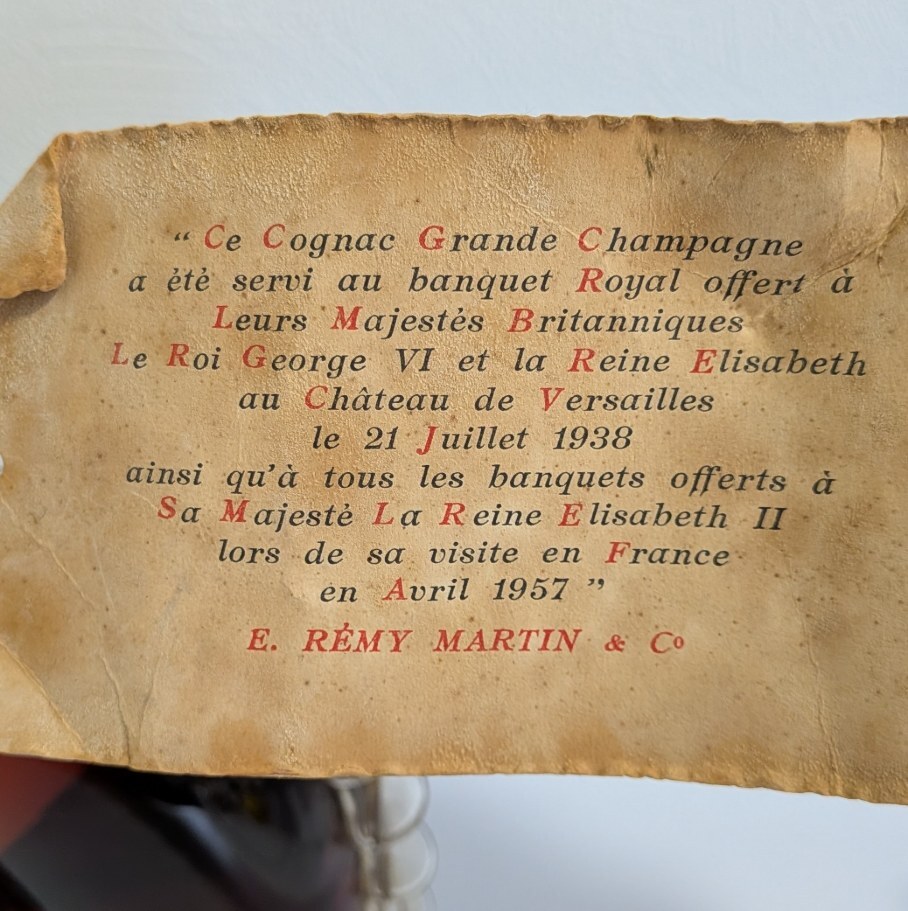 “ Ce Cognac Grande Champagne
a été servi au banquet Royal offert à
Leurs Majestés Britanniques
Le Roi George VI et la Reine Elisabeth
au Château de Versailles
le 21 Juillet 1938
ainsi qu’à tous les banquets offerts à
Sa Majesté La Reine Elisabeth II
lors de sa visite en France
en Avril 1957 ”
E. RÉMY MARTIN & Cº